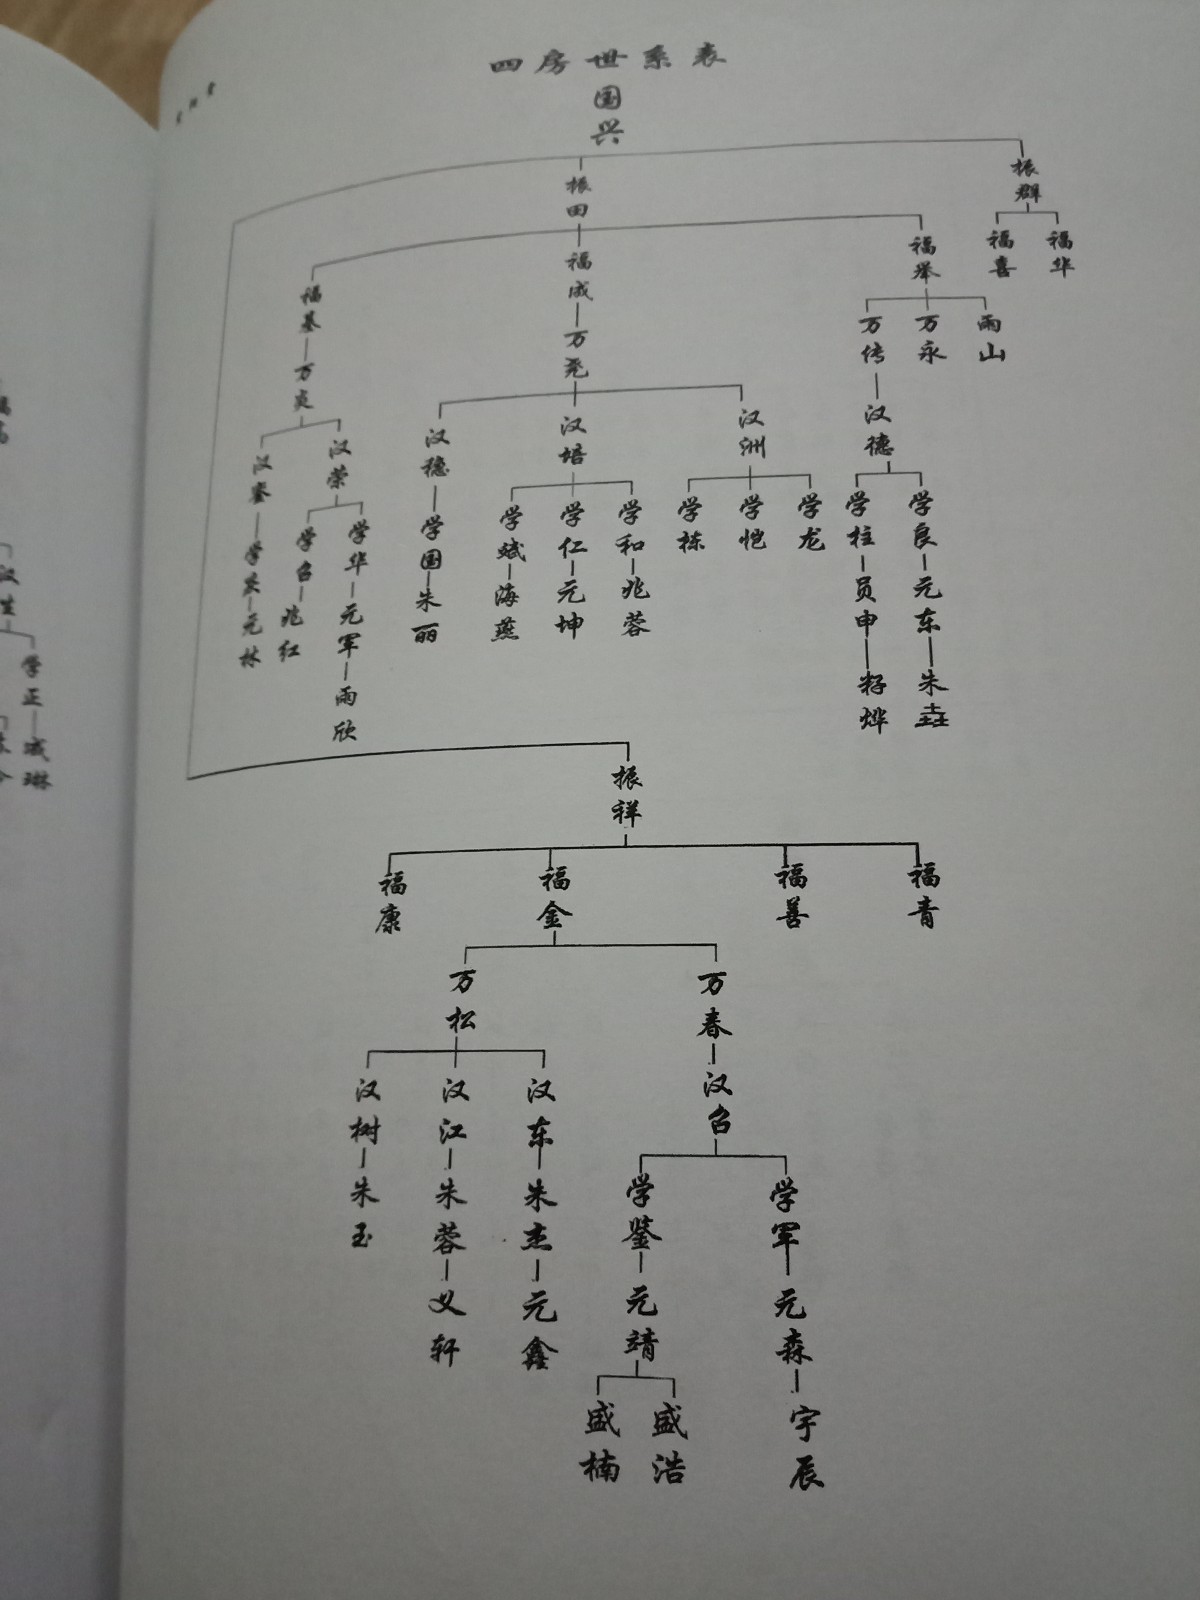 四房世系表
国兴
振田
振群
福基
福成
福举
福喜
福华
万炎
万尧
万传
万永
雨山
汉荣
汉稳
汉培
汉洲
汉德
学召
学华
学国
学斌
学仁
学和
学栋
学恺
学龙
学柱
学良
元林
兆红
元军
朱丽
海燕
元坤
兆蓉
员申
元东
雨欣
籽烨
朱垚
振祥
福康
福金
福善
福青
万松
万春
汉树
汉江
汉东
汉召
朱玉
朱蓉
朱杰
学鉴
学军
义轩
元鑫
元靖
元森
盛楠
盛浩
宇辰
汉生
学正